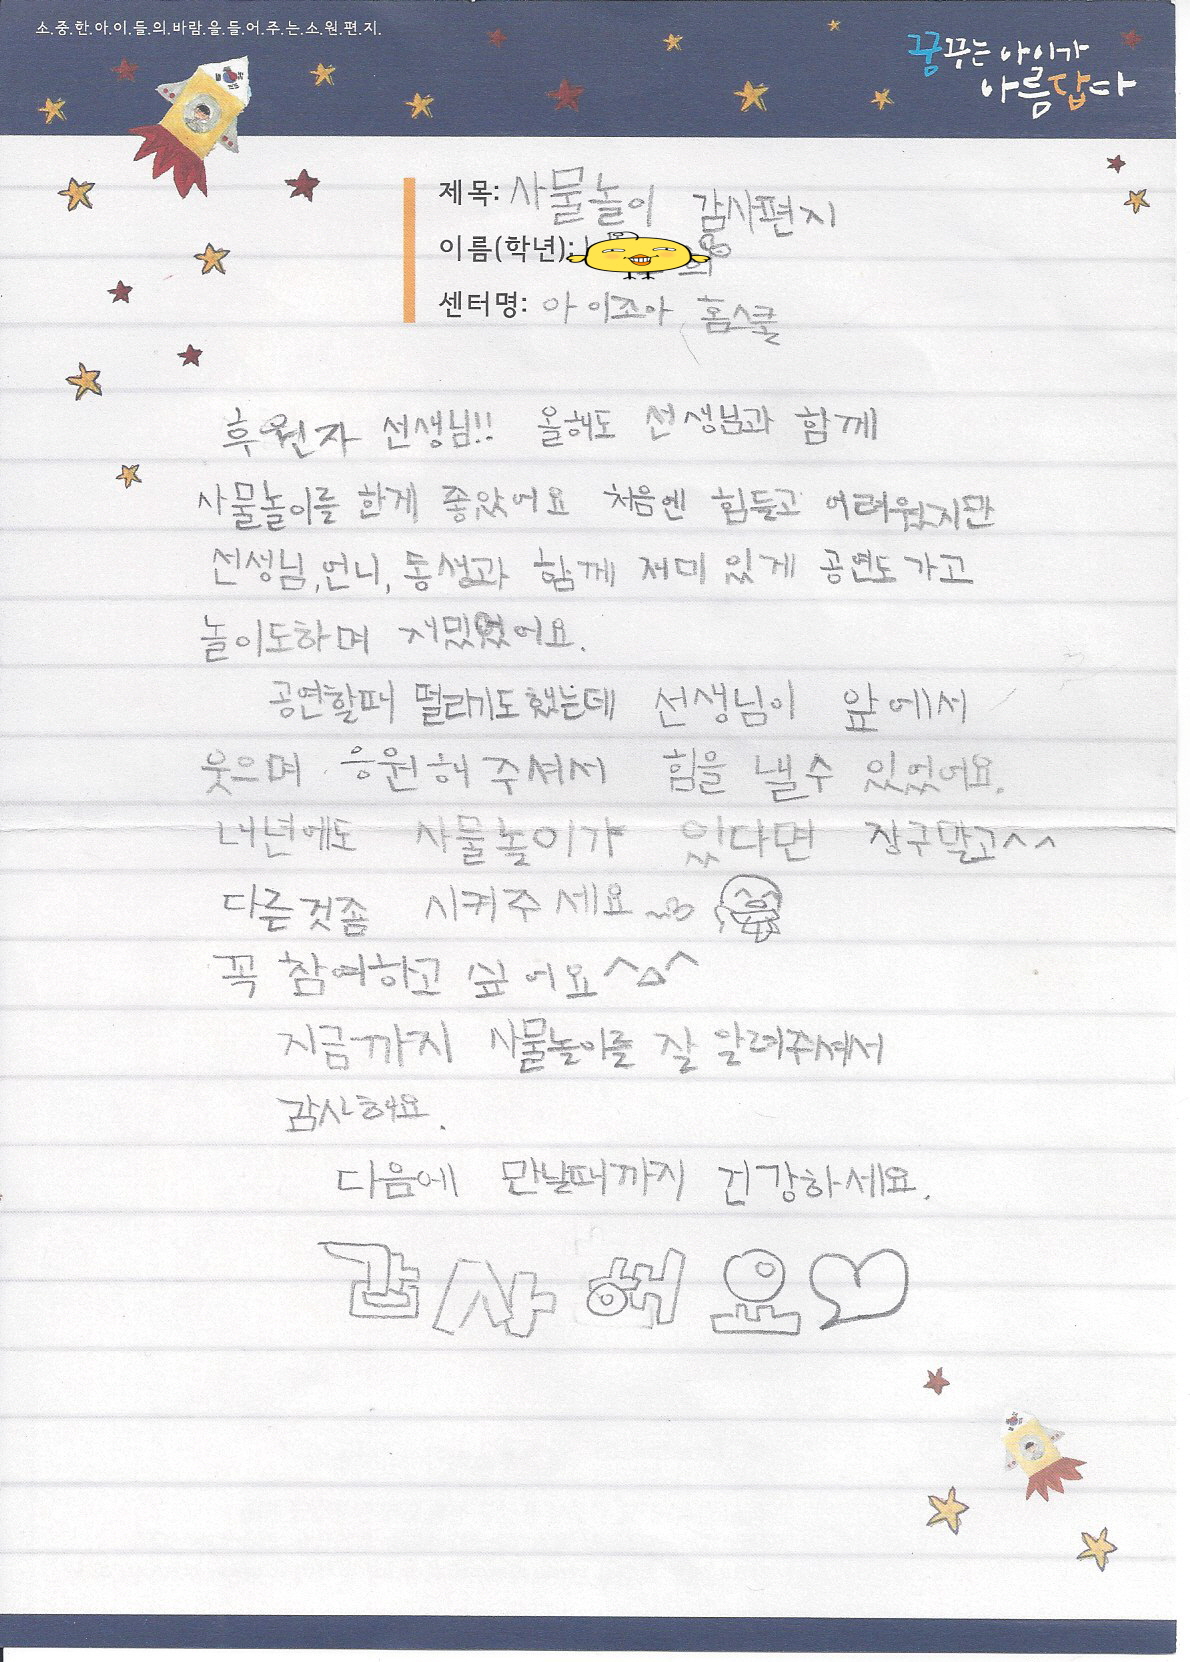 소.중.한.아.이.들.의.바.람.을.들.어.주.는.소.원.편.지.
꿈꾸는 아이가
아름답다
제목: 사물놀이 감사편지
이름(학년):
센터명: 아이조아 홈스쿨
후원자 선생님!! 올해도 선생님과 함께
사물놀이를 한게 좋았어요 처음엔 힘들고 어려웠지만
선생님, 언니, 동생과 함께 재미 있게 공연도 가고
놀이도하며 재밌었어요.
공연할때 떨리기도했는데 선생님이 앞에서
웃으며 응원해 주셔서 힘을 낼수 있었어요.
내년에도 사물놀이가 있다면 장구말고^^
다른것좀 시켜주세요
꼭 참여하고 싶어요^△^
지금까지 사물놀이를 잘 알려주셔서
감사해요.
다음에 만날때까지 건강하세요.
감사해요♡